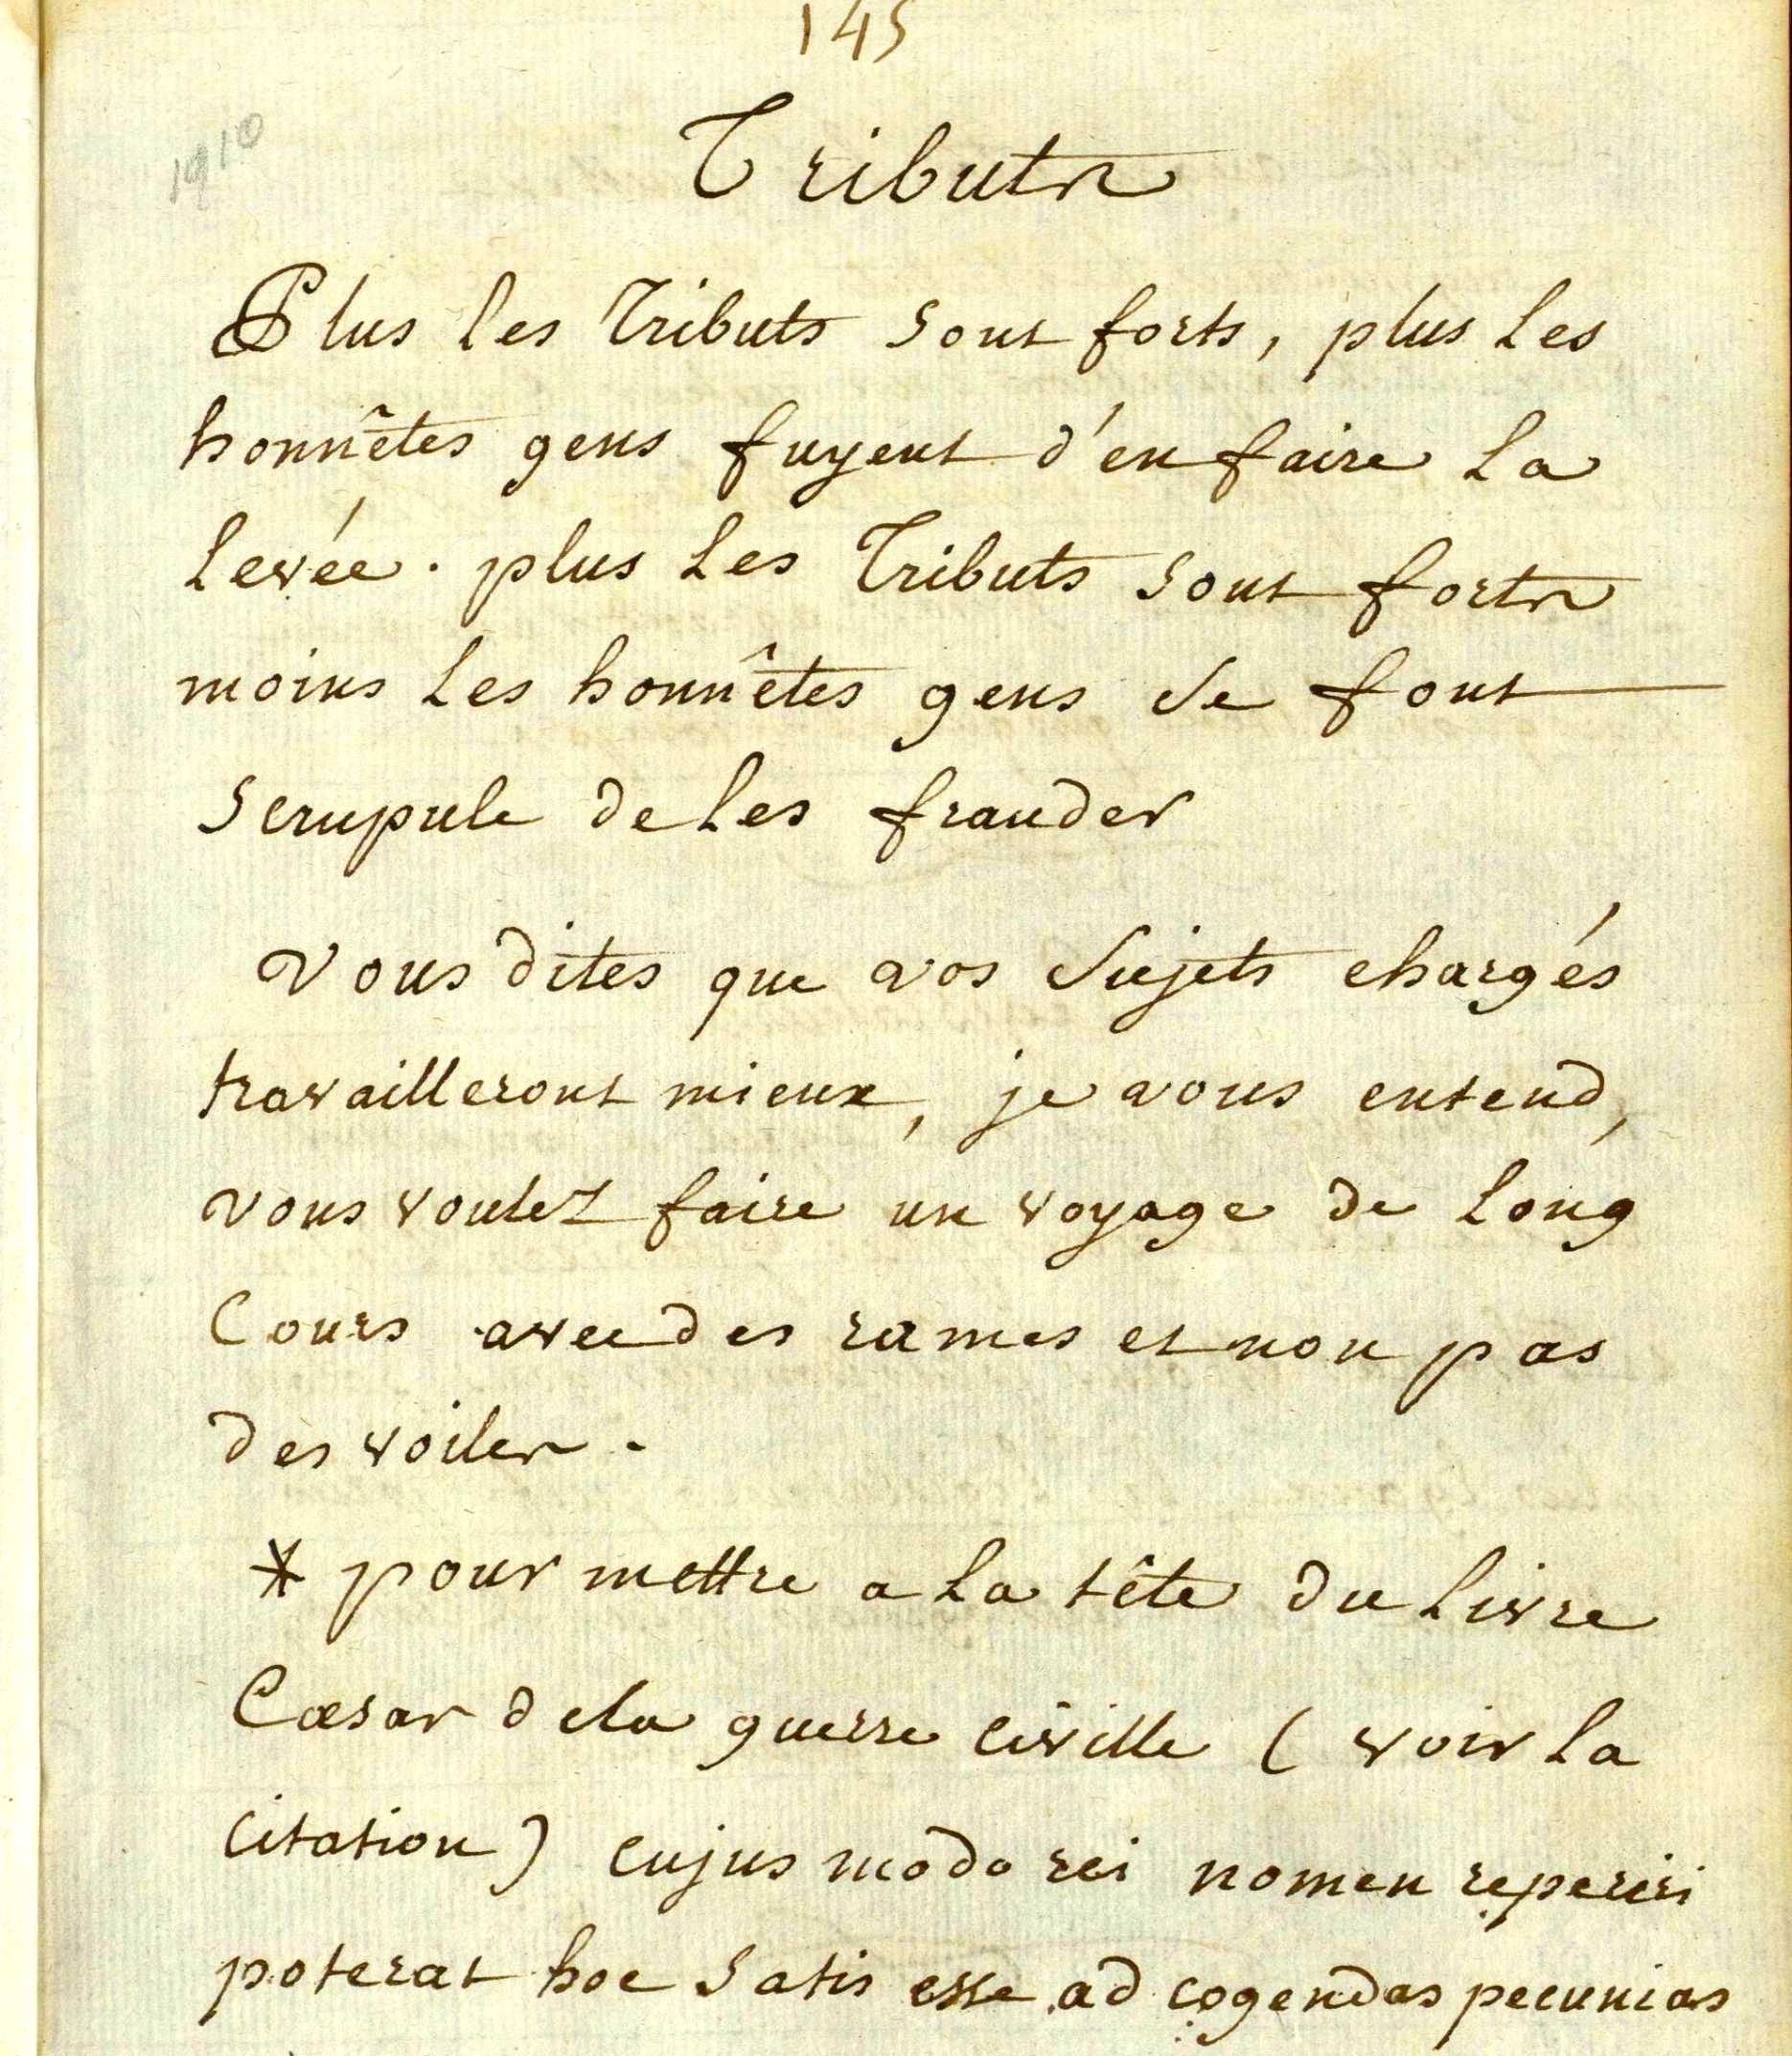 145
1910
Tributs
Plus les Tributs sont forts, plus les
honnêtes gens fuyent d'en faire la
levée. plus les Tributs sont forts
moins les honnêtes gens se font
scrupule de les frauder
vous dites que vos sujets chargés
travailleront mieux, je vous entend,
vous voulez faire un voyage de long
Cours avec des rames et non pas
des voiles.
* pour mettre a la tête du livre
Cæsar de la guerre civille (voir la
citation) cujus modo rei nomen reperiri
poterat hoc satis esse ad cogendas pecunias